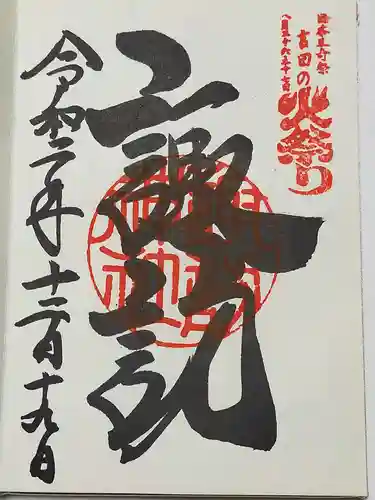 日本三奇祭
吉田の火祭り
八月二十六・二十七日
上諏訪
諏訪
神社
令和二年十二月十九日